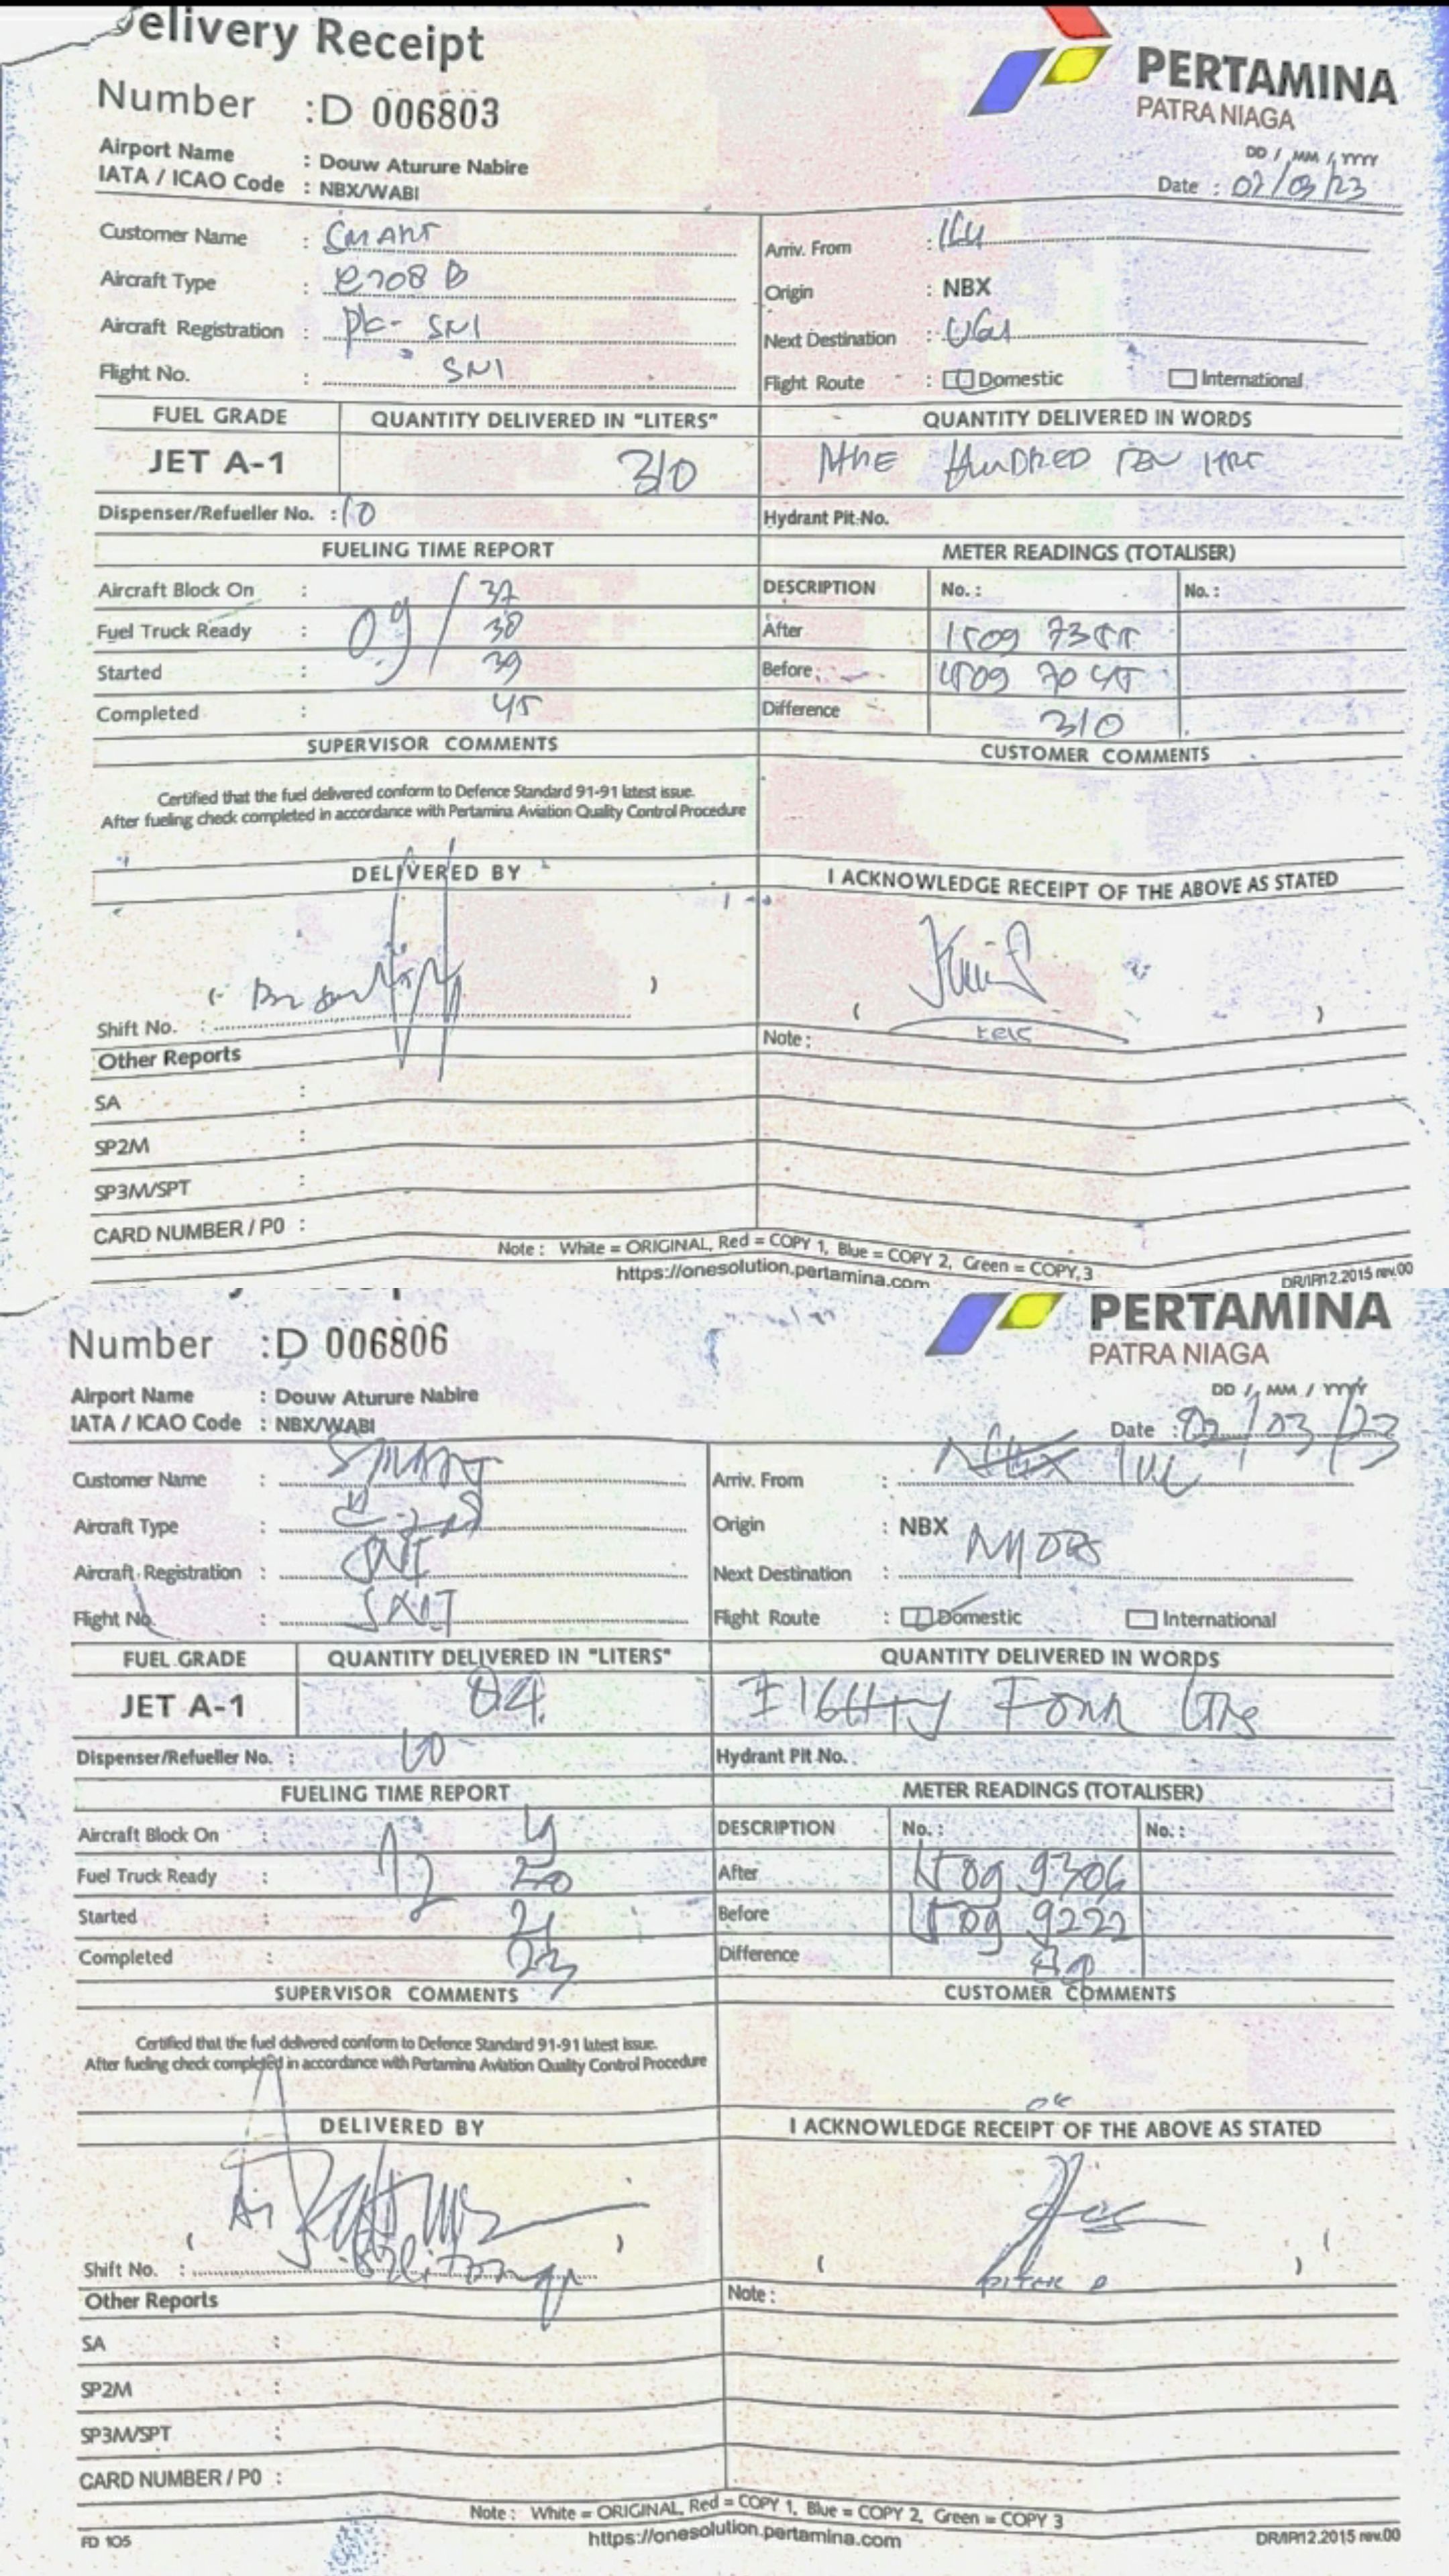 Delivery Receipt
PERTAMINA
PATRA NIAGA
Number : D 006803
Airport Name : Douw Aturure Nabire
IATA / ICAO Code : NBX/WABI
DD / MM / YYYY
Date : 02/03/23
Customer Name : SMART
Arriv. From :
Aircraft Type : C208 B
Origin : NBX
Aircraft Registration : PK- SNI
Next Destination : UGU
Flight No. : SNI
Flight Route : Domestic International
FUEL GRADE QUANTITY DELIVERED IN "LITERS" QUANTITY DELIVERED IN WORDS
JET A-1 310 HUNDRED TEN
Dispenser/Refueller No. : 10 Hydrant Pit No.
FUELING TIME REPORT METER READINGS (TOTALISER)
Aircraft Block On : 37 DESCRIPTION No. : No. :
Fuel Truck Ready : 09 / 38 After 1509 7355
Started : 39 Before 1509 7045
Completed : 45 Difference 310
SUPERVISOR COMMENTS CUSTOMER COMMENTS
Certified that the fuel delivered conform to Defence Standard 91-91 latest issue.
After fueling check completed in accordance with Pertamina Aviation Quality Control Procedure
DELIVERED BY I ACKNOWLEDGE RECEIPT OF THE ABOVE AS STATED
Shift No. :
Note :
Other Reports
SA :
SP2M :
SP3M/SPT :
CARD NUMBER / P0 :
Note : White = ORIGINAL, Red = COPY 1, Blue = COPY 2, Green = COPY 3
https://onesolution.pertamina.com
DR/IP/12.2015 rev.00
PERTAMINA
PATRA NIAGA
Number : D 006806
Airport Name : Douw Aturure Nabire
IATA / ICAO Code : NBX/WABI
DD / MM / YYYY
Date : 02/03/23
Customer Name : SMART
Arriv. From :
Aircraft Type :
Origin : NBX
Aircraft Registration : SNI
Next Destination :
Flight No. : SNI
Flight Route : Domestic International
FUEL GRADE QUANTITY DELIVERED IN "LITERS" QUANTITY DELIVERED IN WORDS
JET A-1 84. EIGHTY FOUR
Dispenser/Refueller No. : 10 Hydrant Pit No. :
FUELING TIME REPORT METER READINGS (TOTALISER)
Aircraft Block On : 12 19 DESCRIPTION No. : No. :
Fuel Truck Ready : 20 After 1509 9306
Started : 21 Before 1509 9222
Completed : 23 Difference
SUPERVISOR COMMENTS CUSTOMER COMMENTS
Certified that the fuel delivered conform to Defence Standard 91-91 latest issue.
After fueling check completed in accordance with Pertamina Aviation Quality Control Procedure
OK
DELIVERED BY I ACKNOWLEDGE RECEIPT OF THE ABOVE AS STATED
Shift No. :
Note :
Other Reports
SA :
SP2M :
SP3M/SPT :
CARD NUMBER / P0 :
Note : White = ORIGINAL, Red = COPY 1, Blue = COPY 2, Green = COPY 3
https://onesolution.pertamina.com
FD 105
DR/IP/12.2015 rev.00